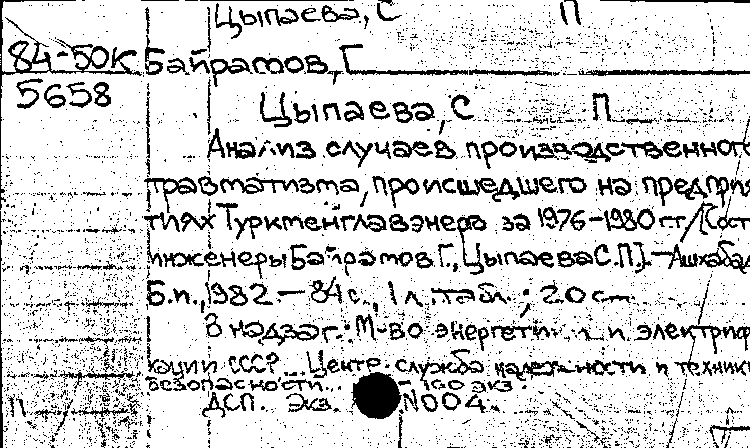 Цыпаева, С П
84-50К Байрамов, Г
5658
Цыпаева, С П
Анализ случаев производственного
травматизма, происшедшего на предприя
тиях Туркменглавэнерго за 1976-1980 г.г. /[Сост
инженеры Байрамов Г., Цыпаева С.П.]. - Ашхабад
Б.п., 1982. - 84 с., 1 л. табл.; 20 см.
В надзаг.: М-во энергетики и электрифи
кации СССР. Центр. служба надежности и техники
безопасности. - 100 экз.
ДСП. Экз. №004.